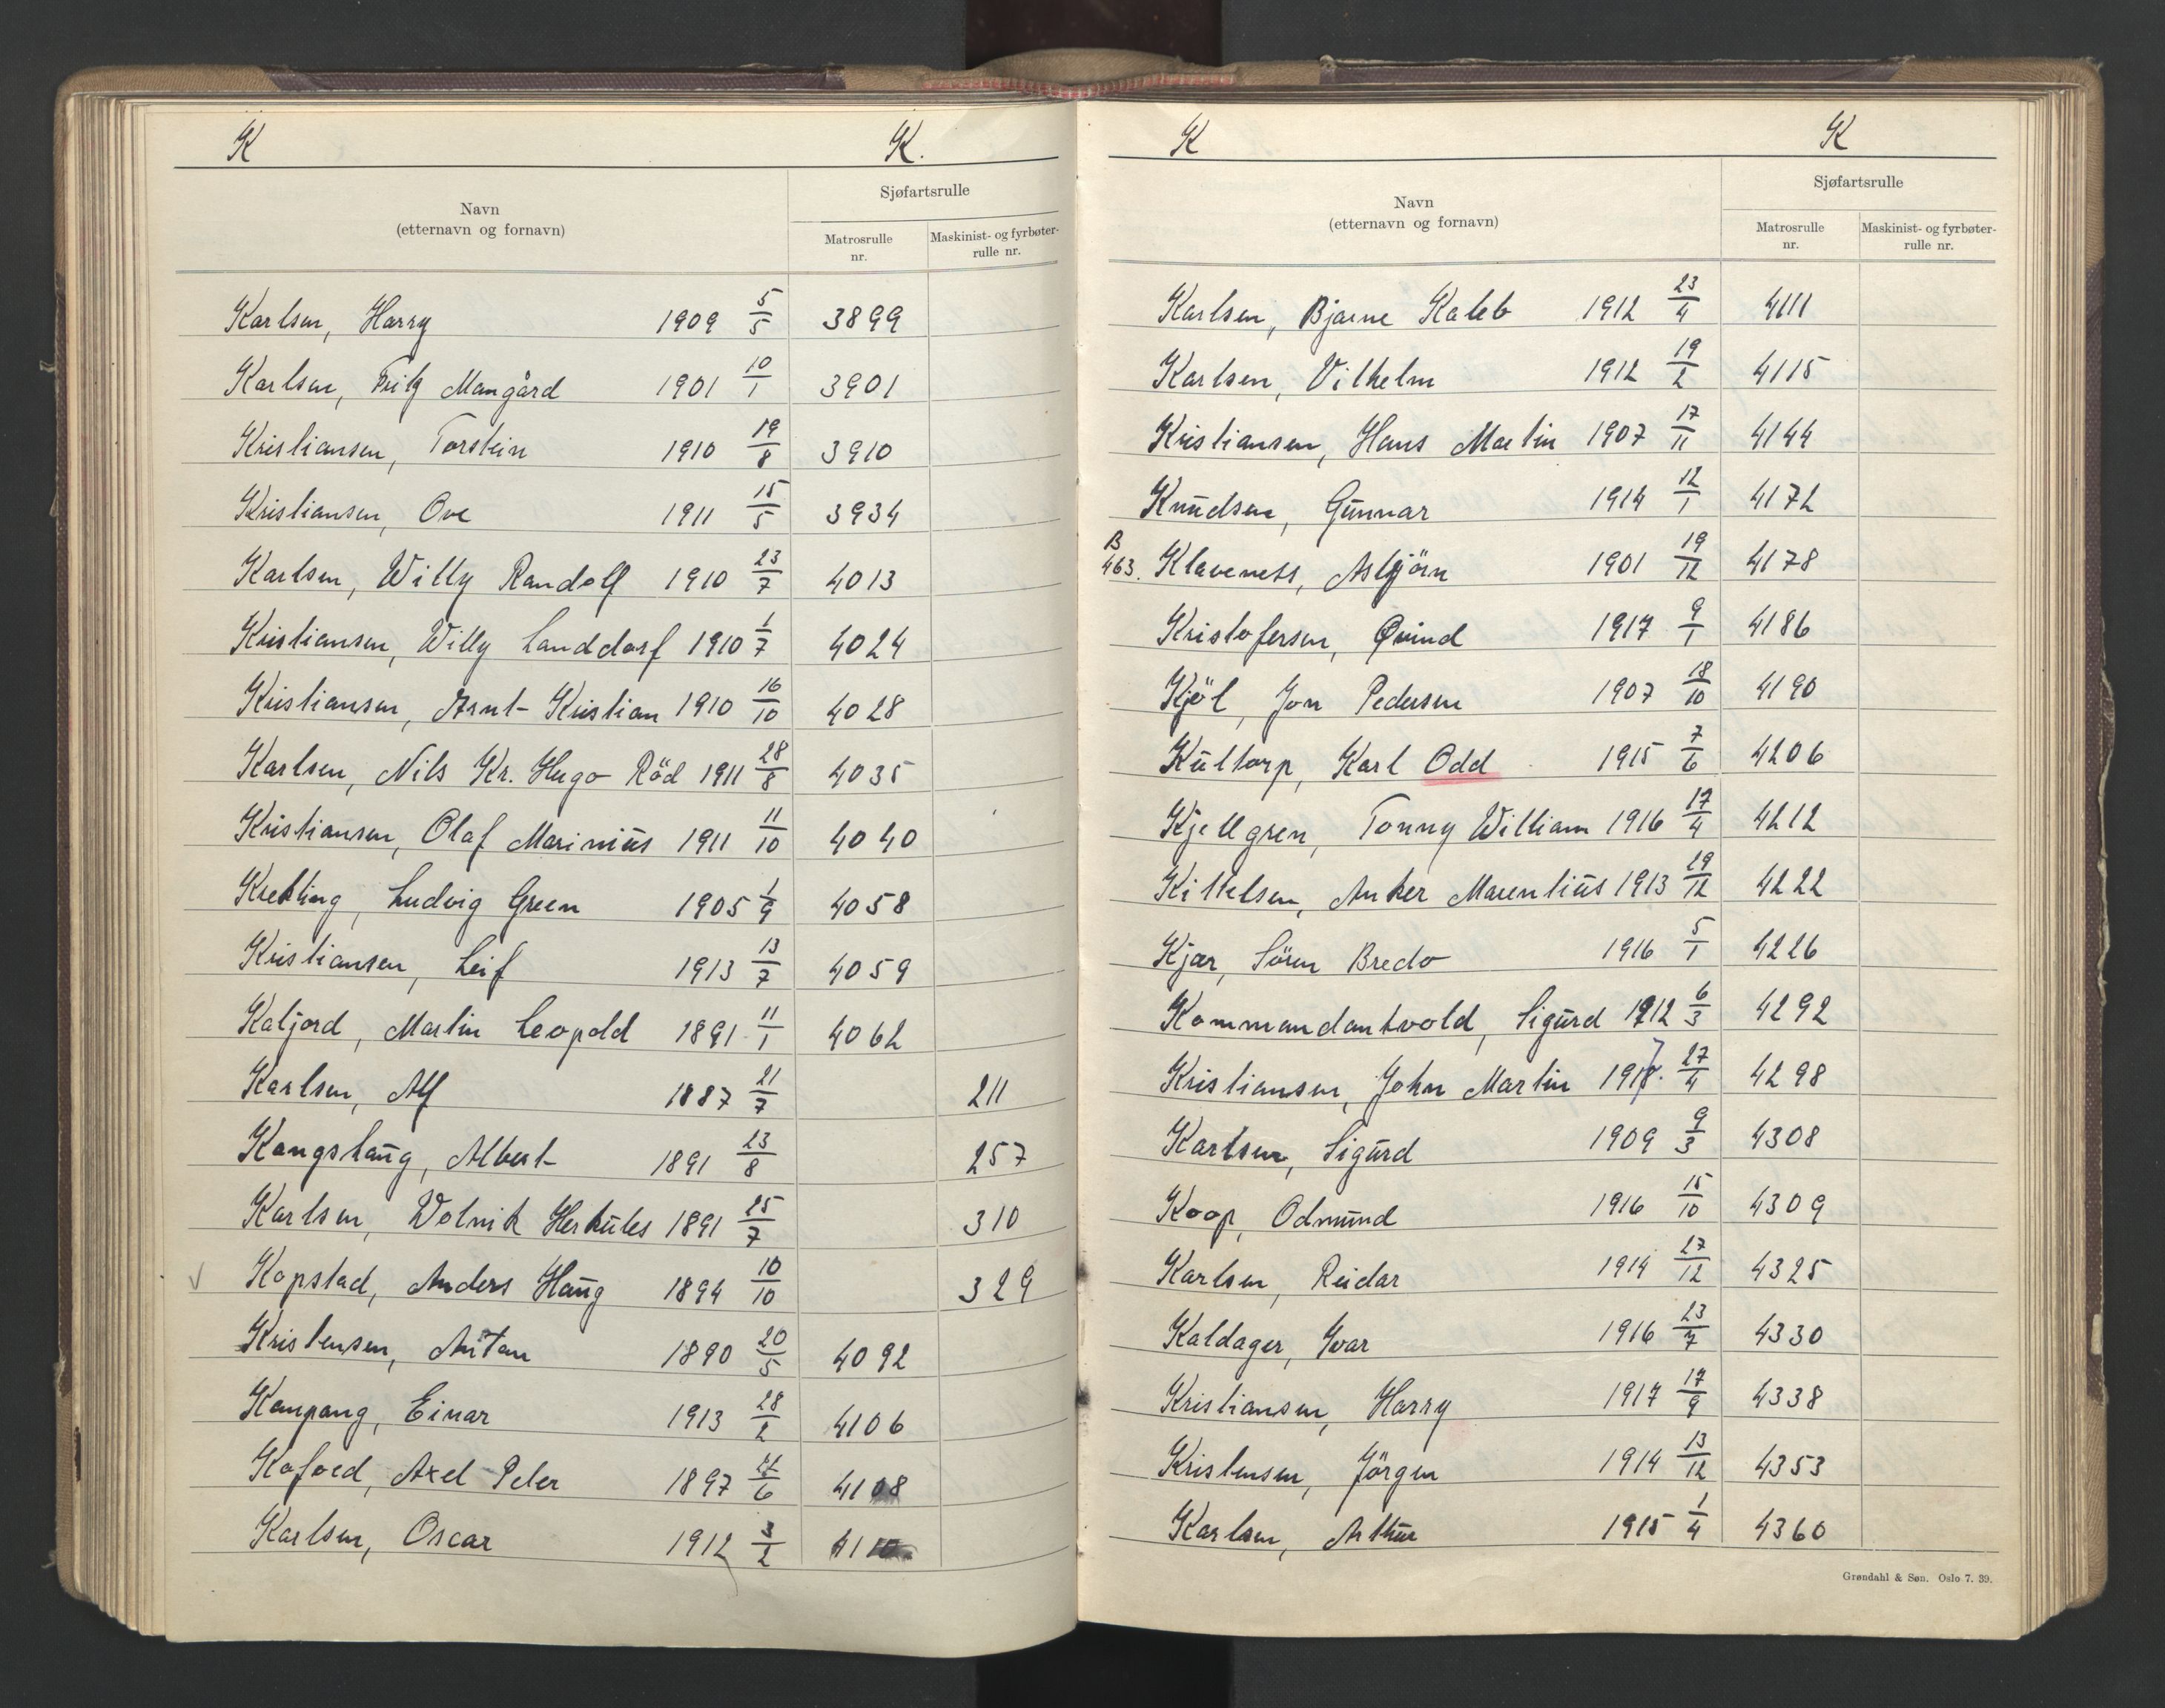 K K.
Sjøfartsrulle
Navn
(etternavn og fornavn)
Matrosrulle
nr.
Maskinist- og fyrbøter-
rulle nr.
Karlsen, Harry 1909 5/5 3899
Karlsen, Fritz Mangård 1901 10/1 3901
Kristiansen, Torstein 1910 19/8 3910
Kristiansen, Ove 1911 15/5 3934
Karlsen, Willy Randolf 1910 23/7 4013
Kristiansen, Willy Landdorf 1910 1/7 4024
Kristiansen, Arnt Kristian 1910 16/10 4028
Karlsen, Nils Kr. Hugo Röd 1911 28/8 4035
Kristiansen, Olaf Marinius 1911 11/10 4040
Ludvig Green 1905 1/9 4058
Kristiansen, Leif 1913 13/7 4059
Kaljord, Martin Leopold 1891 11/1 4062
Karlsen, Alf 1887 21/7 211
Kongshaug, Albert 1891 23/8 257
Karlsen, Volnik Herkules 1891 25/7 310
Kopstad, Anders Haug 1894 10/10 329
Kristensen, Anton 1890 20/5 4092
Kampang, Einar 1913 28/2 4106
Kofoed, Axel Peter 1897 /6 4108
Karlsen, Oscar 1912 3/2 4110
K K
Sjøfartsrulle
Navn
(etternavn og fornavn)
Matrosrulle
nr.
Maskinist- og fyrbøter-
rulle nr.
Karlsen, Bjarne Kaleb 1912 23/4 4111
Karlsen, Vilhelm 1912 19/2 4115
Kristiansen, Hans Martin 1907 17/11 4144
Knudsen, Gunnar 1914 12/1 4172
B
463. Klaveness, Asbjörn 1901 19/12 4178
Kristofersen, Øvind 1917 9/1 4186
Kjöl, Jon Pedersen 1907 18/10 4190
Kultorp, Karl Odd 1915 7/6 4206
Kjellgren, Tonny William 1916 17/4 4212
Kittelsen, Anker Marentius 1913 29/12 4222
Kjær, Sören Bredo 1916 5/1 4226
Kommandantvold, Sigurd 1912 6/3 4292
Kristiansen, John Martin 1917 27/4 4298
Karlsen, Sigurd 1909 9/3 4308
Koop, Odmund 1916 15/10 4309
Karlsen, Reidar 1914 27/12 4325
Kaldager, Ivar 1916 23/7 4330
Kristiansen, Harry 1917 17/9 4338
Kristensen, Jörgen 1914 13/12 4353
Karlsen, Arthur 1915 1/4 4360
Grøndahl & Søn. Oslo 7. 39.